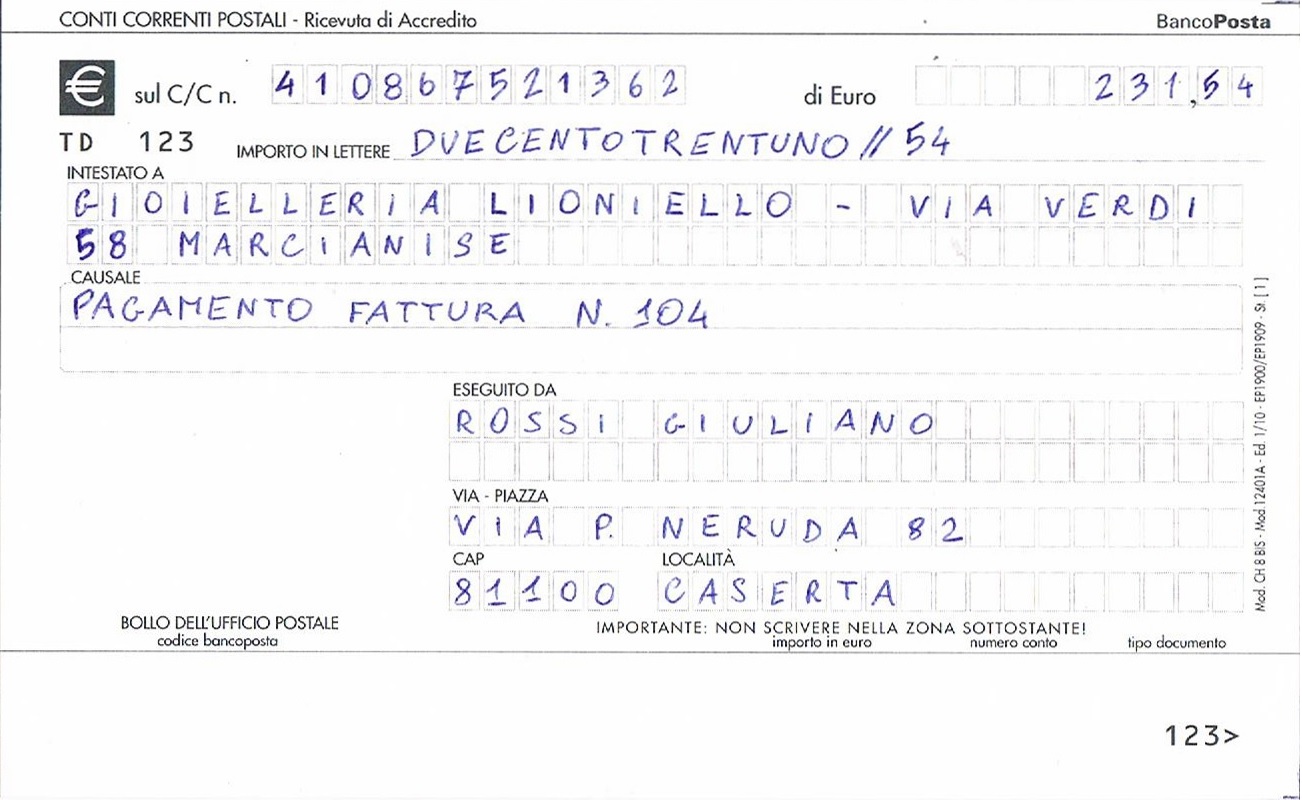 CONTI CORRENTI POSTALI - Ricevuta di Accredito BancoPosta
€ sul C/C n. 410867521362 di Euro 231,54
TD 123 IMPORTO IN LETTERE DUECENTOTRENTUNO // 54
INTESTATO A
GIOIELLERIA LIONIELLO - VIA VERDI
58 MARCIANISE
CAUSALE
PAGAMENTO FATTURA N. 104
ESEGUITO DA
ROSSI GIULIANO
VIA - PIAZZA
VIA P. NERUDA 82
CAP LOCALITÀ
81100 CASERTA
BOLLO DELL'UFFICIO POSTALE
codice bancoposta
IMPORTANTE: NON SCRIVERE NELLA ZONA SOTTOSTANTE!
importo in euro numero conto tipo documento
Mod. CH 8 BIS - Mod. 112401A - Ed. 1/10 - EP1900/EP1909 - St. [1]
123>